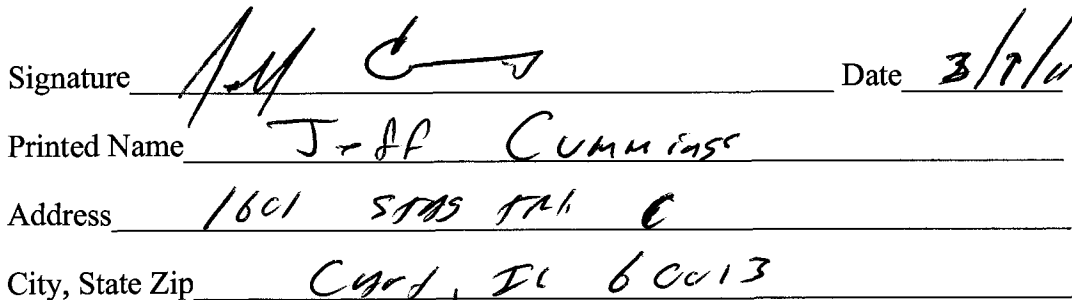 Signature Jeff C Date 3/
Printed Name Jeff Cummings
Address 1601
City, State Zip Cary, IL 60013